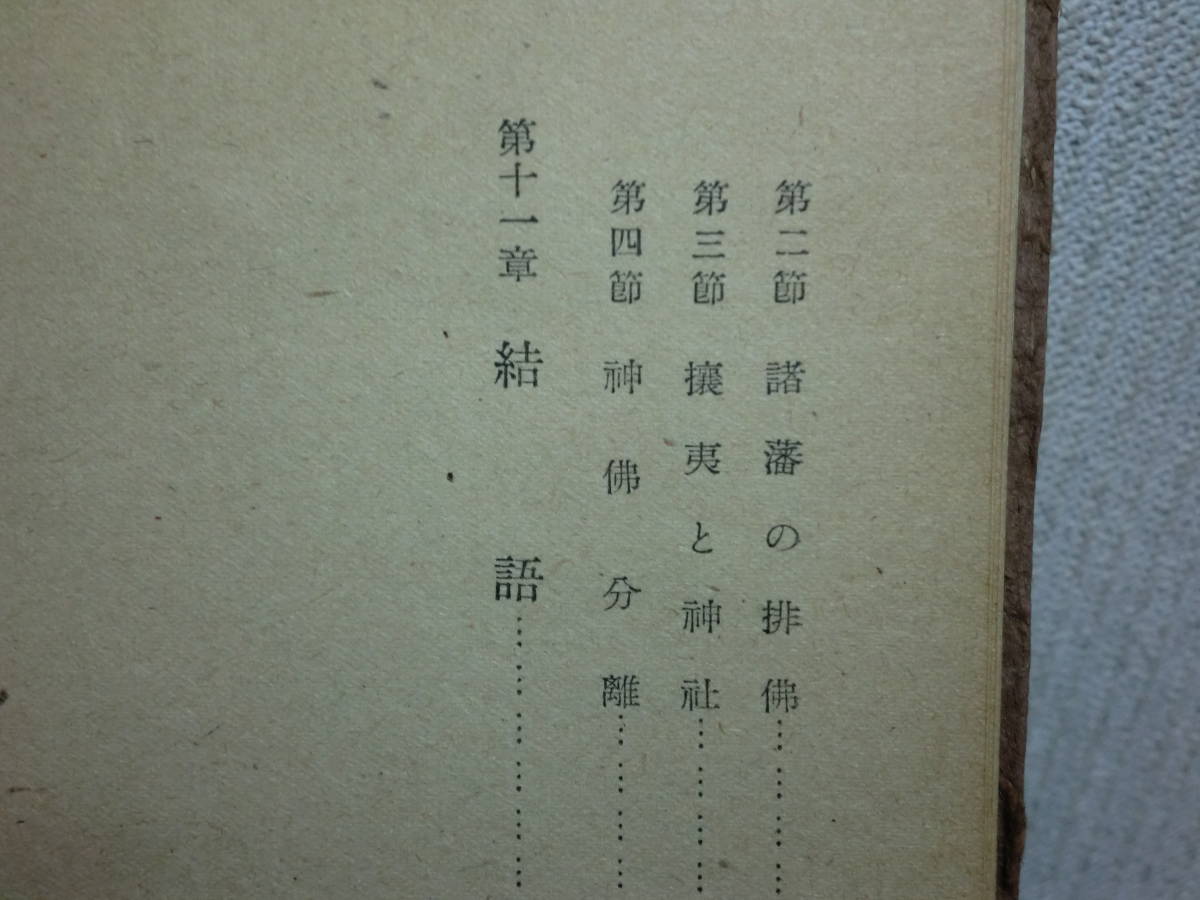 第二節 諸藩の排佛………………
第三節 攘夷と神社………………
第四節 神佛分離………………
第十一章 結語………………